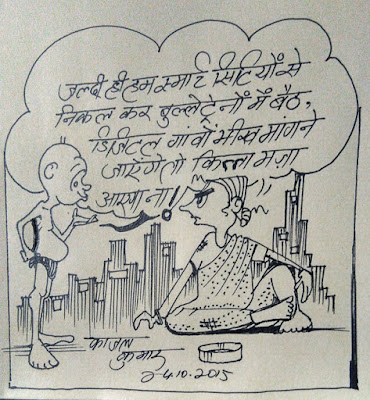 जल्दी ही हम स्मार्ट सिटियों से
निकल कर बुल्लेट्रेनों में बैठ,
डिजिटल गांवों भीख मांगने
जाएंगे तो कित्ता मज़ा
आएगा ना!
काजल
कुमार
24.10.2015